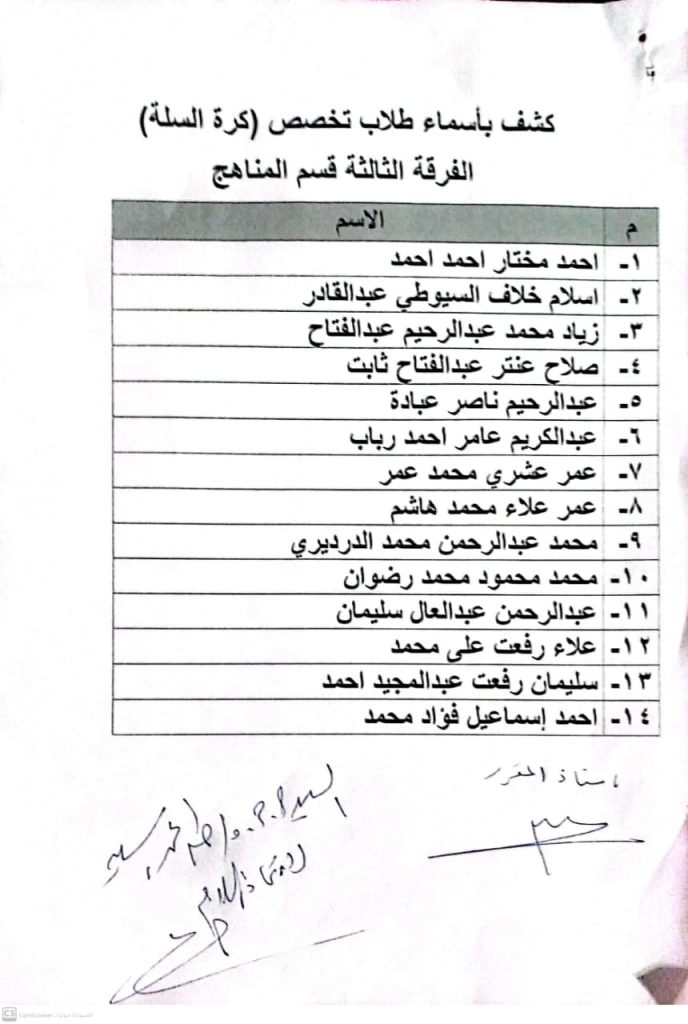 كشف بأسماء طلاب تخصص (كرة السلة)
الفرقة الثالثة قسم المناهج
م الاسم
١- احمد مختار احمد احمد
٢- اسلام خلاف السيوطي عبدالقادر
٣- زياد محمد عبدالرحيم عبدالفتاح
٤- صلاح عنتر عبدالفتاح ثابت
٥- عبدالرحيم ناصر عبادة
٦- عبدالكريم عامر احمد رباب
٧- عمر عشري محمد عمر
٨- عمر علاء محمد هاشم
٩- محمد عبدالرحمن محمد الدرديري
١٠- محمد محمود محمد رضوان
١١- عبدالرحمن عبدالعال سليمان
١٢- علاء رفعت على محمد
١٣- سليمان رفعت عبدالمجيد احمد
١٤- احمد إسماعيل فؤاد محمد
استاذ المقرر
السيد أ.م.د
CS CamScanner